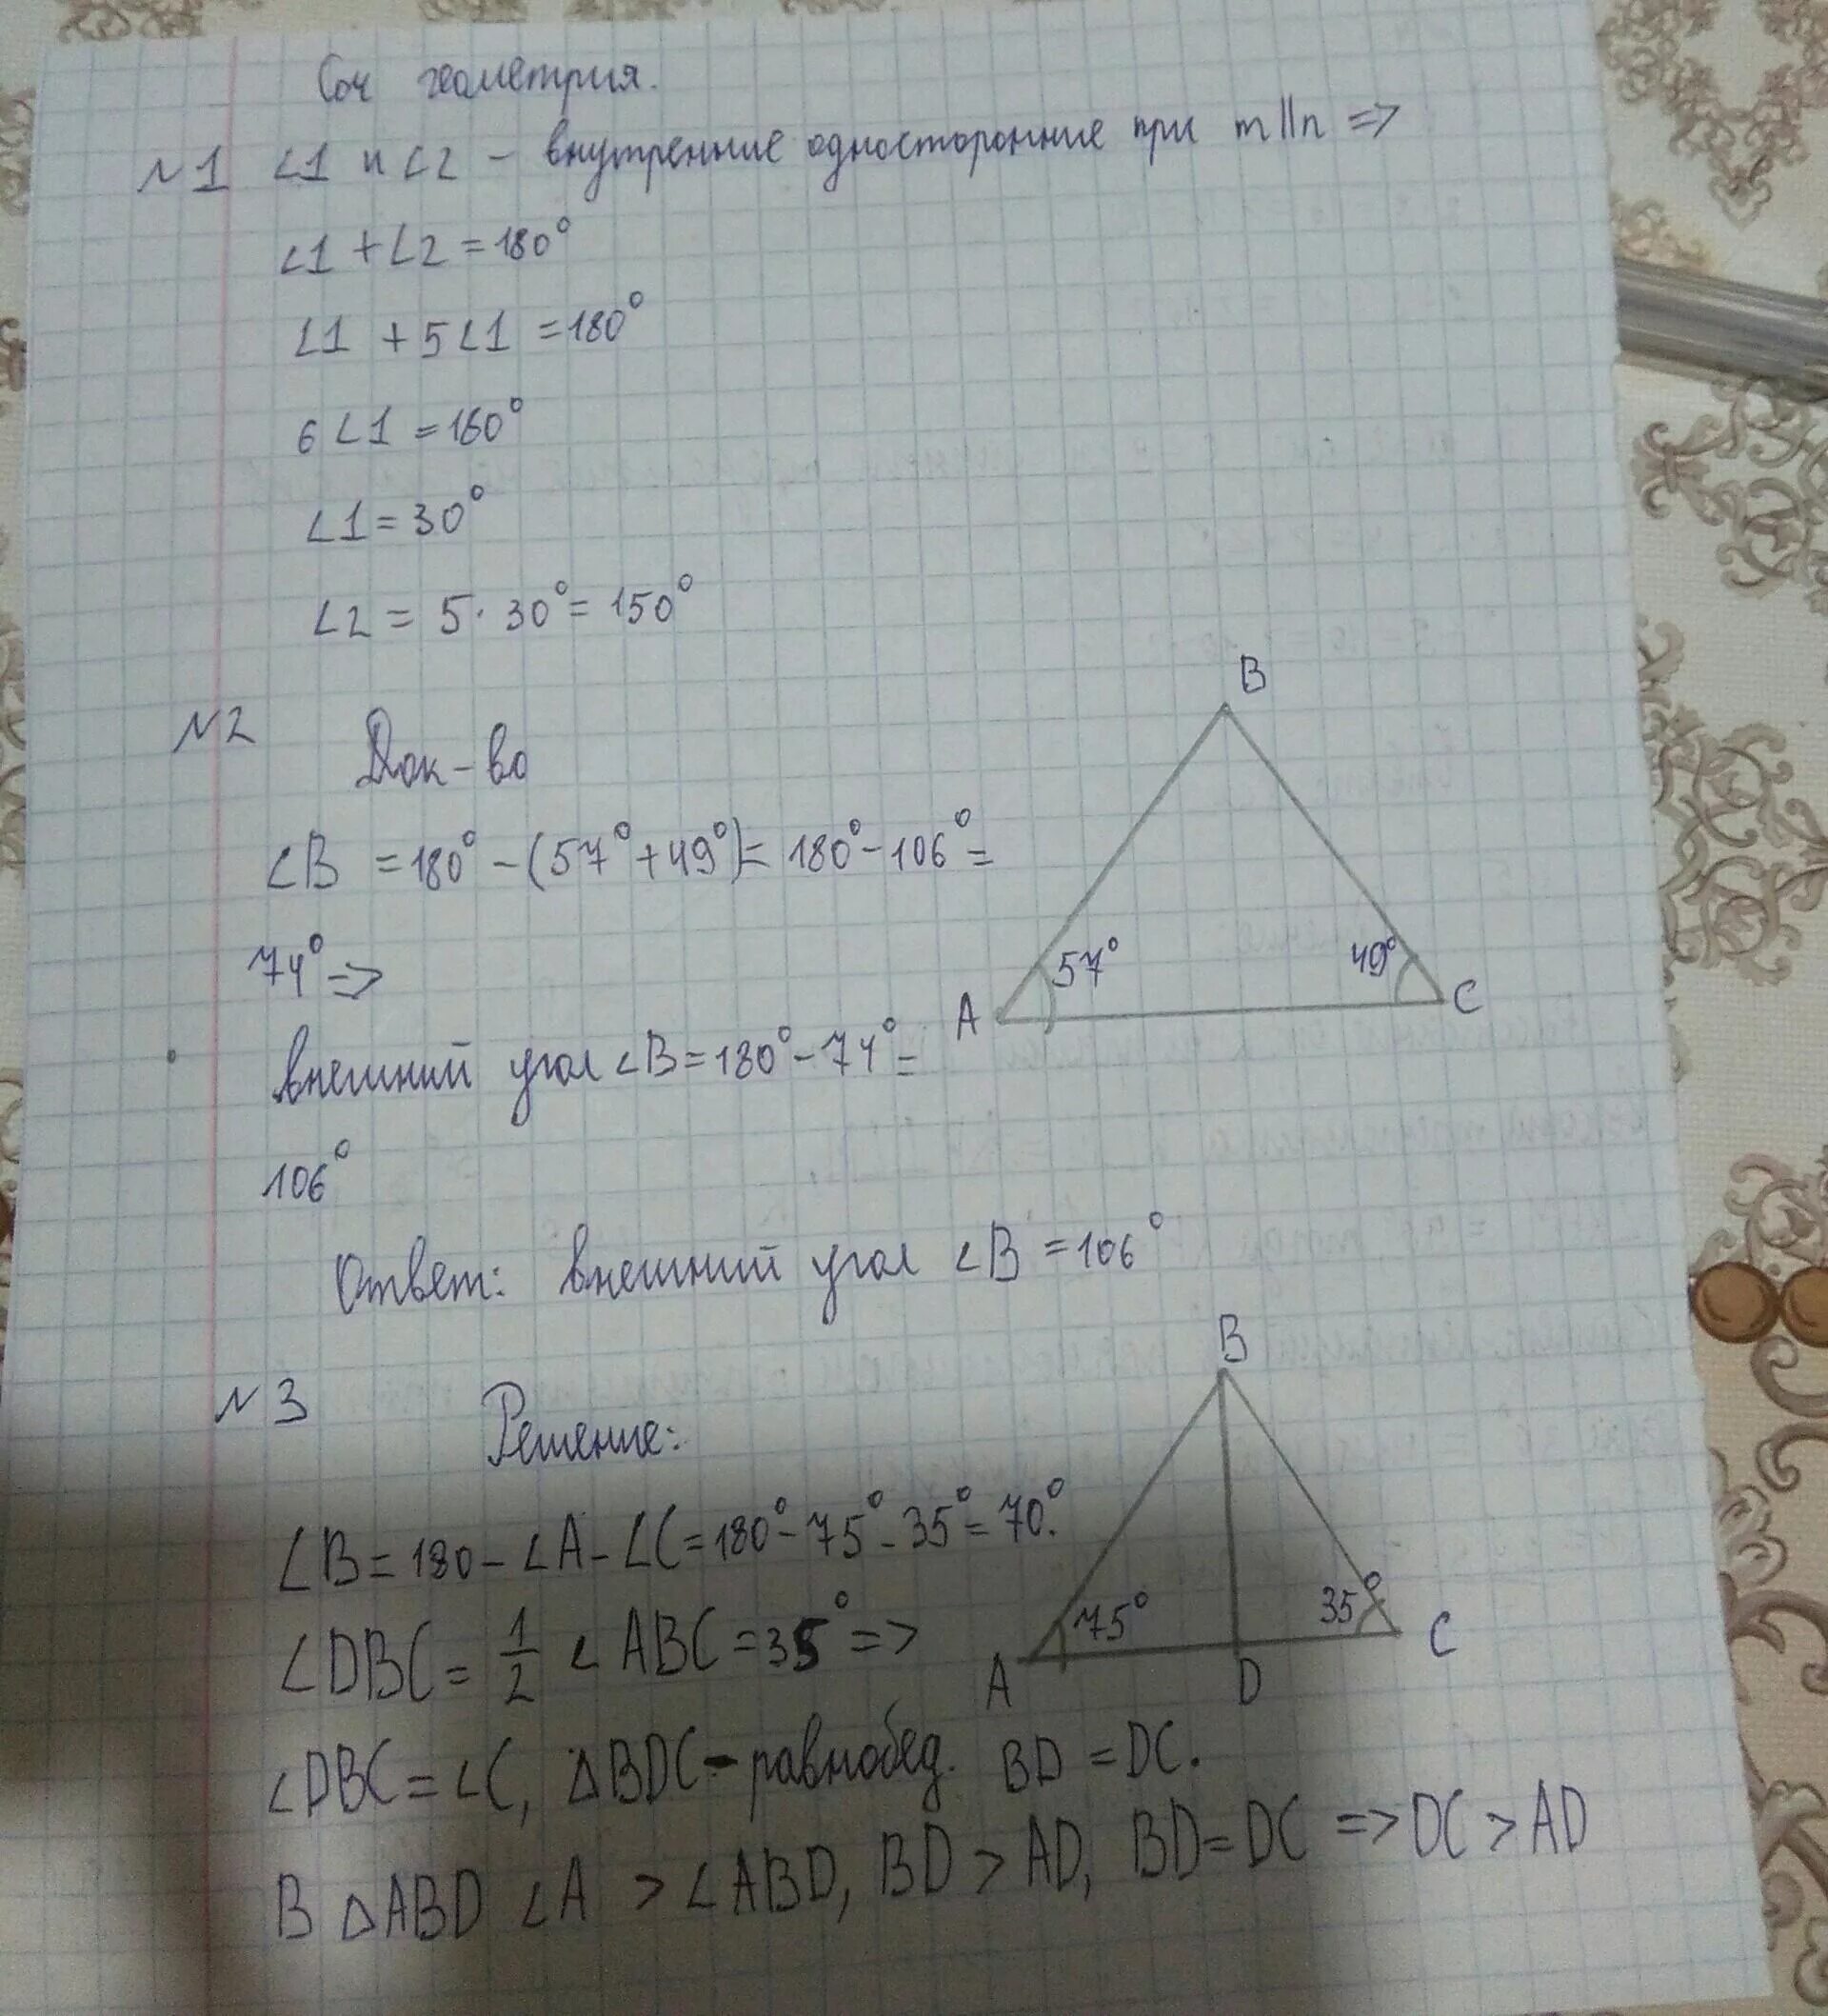 Соч геометрия.
№1 ∠1 и ∠2 – внутренние односторонние при m||n =>
∠1 + ∠2 = 180°
∠1 + 5∠1 = 180°
6∠1 = 180°
∠1 = 30°
∠2 = 5 · 30° = 150°
№2 Док-во
∠B = 180° – (57° + 49°) = 180° – 106° =
74° =>
внешний угол ∠B = 180° – 74° =
106°
Ответ: внешний угол ∠B = 106°
B
57°
49°
A
C
№3 Решение:
∠B = 180 – ∠A – ∠C = 180° – 75° – 35° = 70°.
∠DBC = 1/2 ∠ABC = 35° =>
∠DBC = ∠C, △BDC – равнобед. BD = DC.
В △ABD ∠A > ∠ABD, BD > AD, BD = DC => DC > AD
B
75°
35°
A
D
C